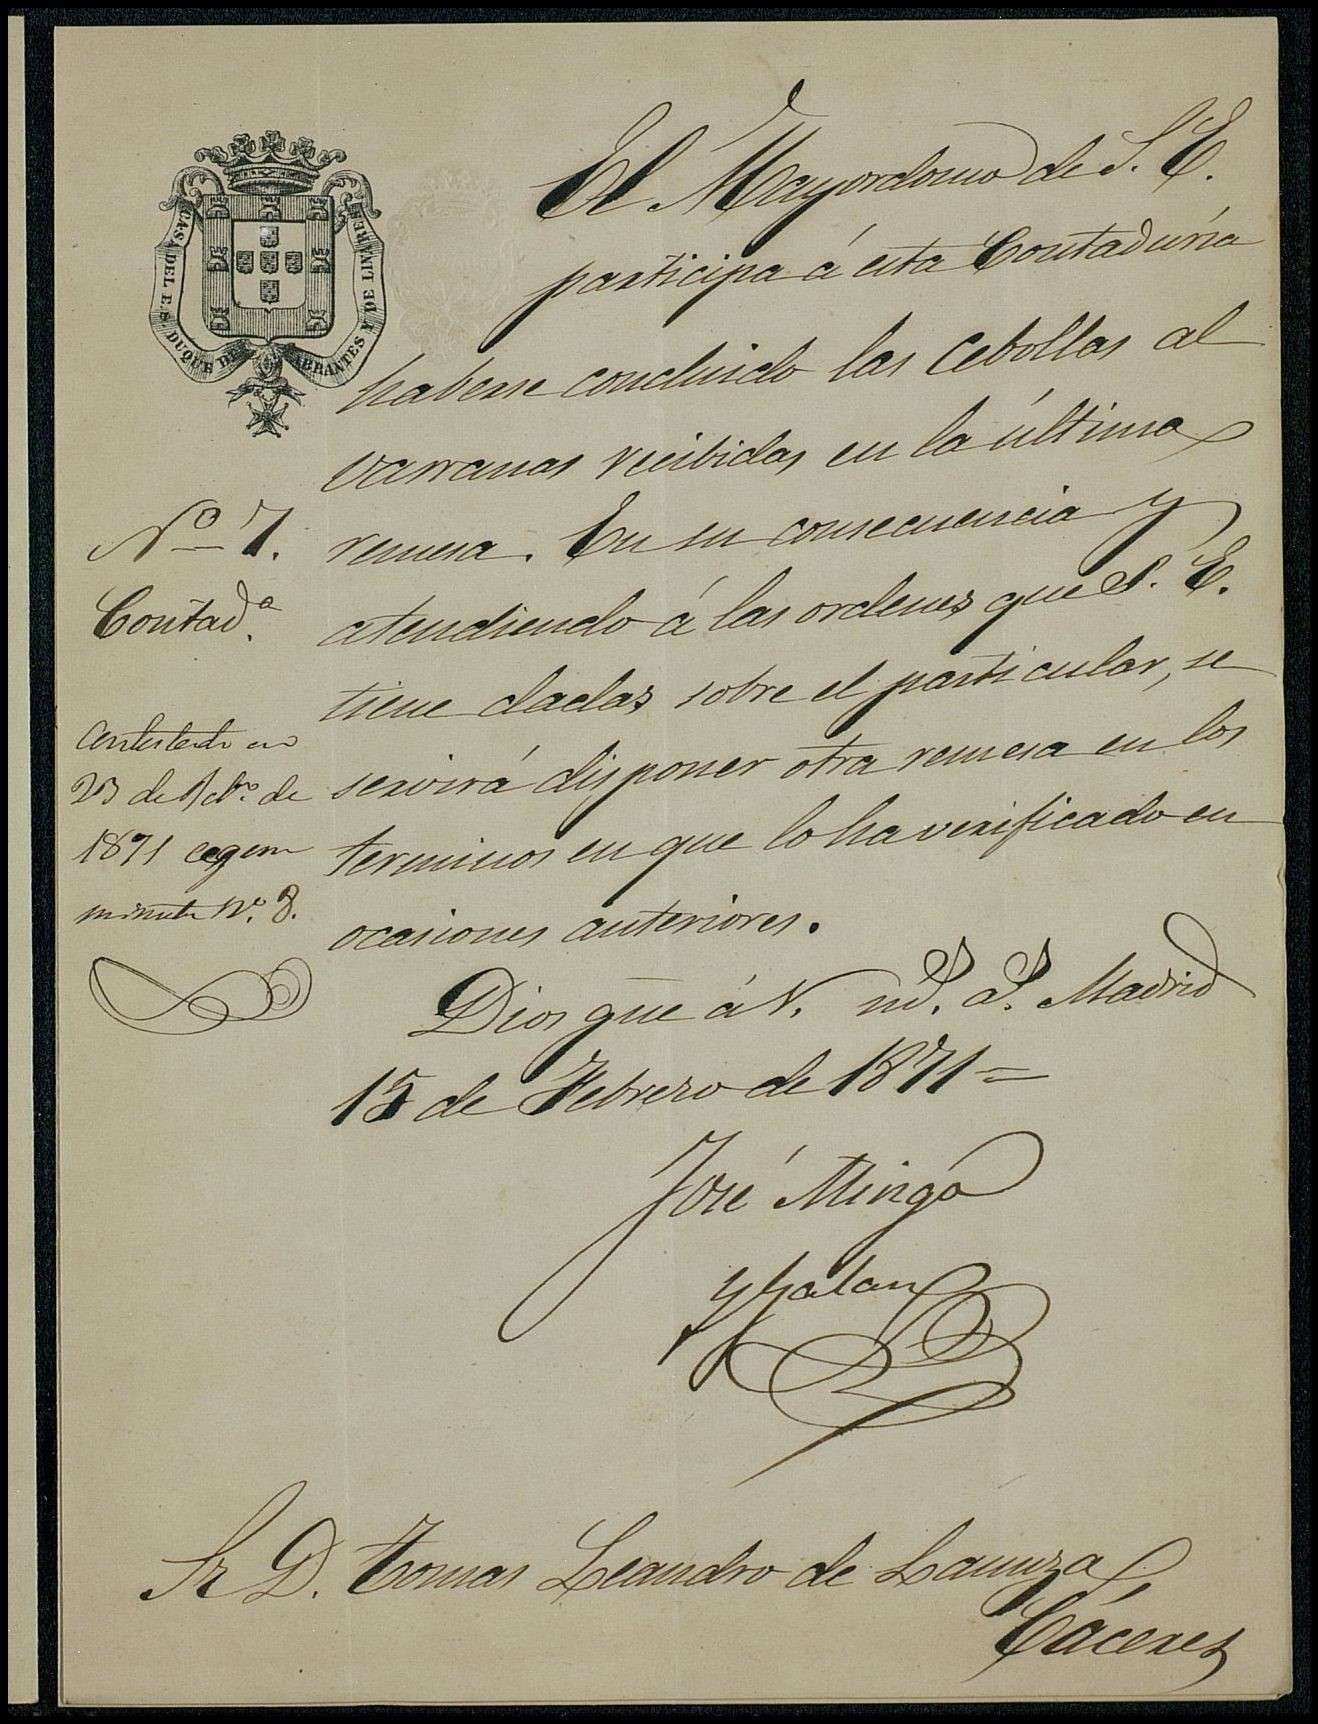 CASA DEL E. S. DUQUE DE ABRANTES Y DE LINARES
El Mayordomo de S. E.
participa á esta Contaduría
haberse concluido las cebollas al
varranas recibidas en la última
remesa. En su consecuencia y
atendiendo á las ordenes que S. E.
tiene dadas sobre el particular, se
servirá disponer otra remesa en los
terminos en que lo ha verificado en
ocasiones anteriores.
Dios gue á V. ms. as. Madrid
15 de Febrero de 1871=
José Mingo
y Galan
Nº 7.
Contadª.
Contestada en
23 de Febº. de
1871 segun
minuta Nº. 8.
Sr D. Tomas Leandro de Lanuza
Cáceres